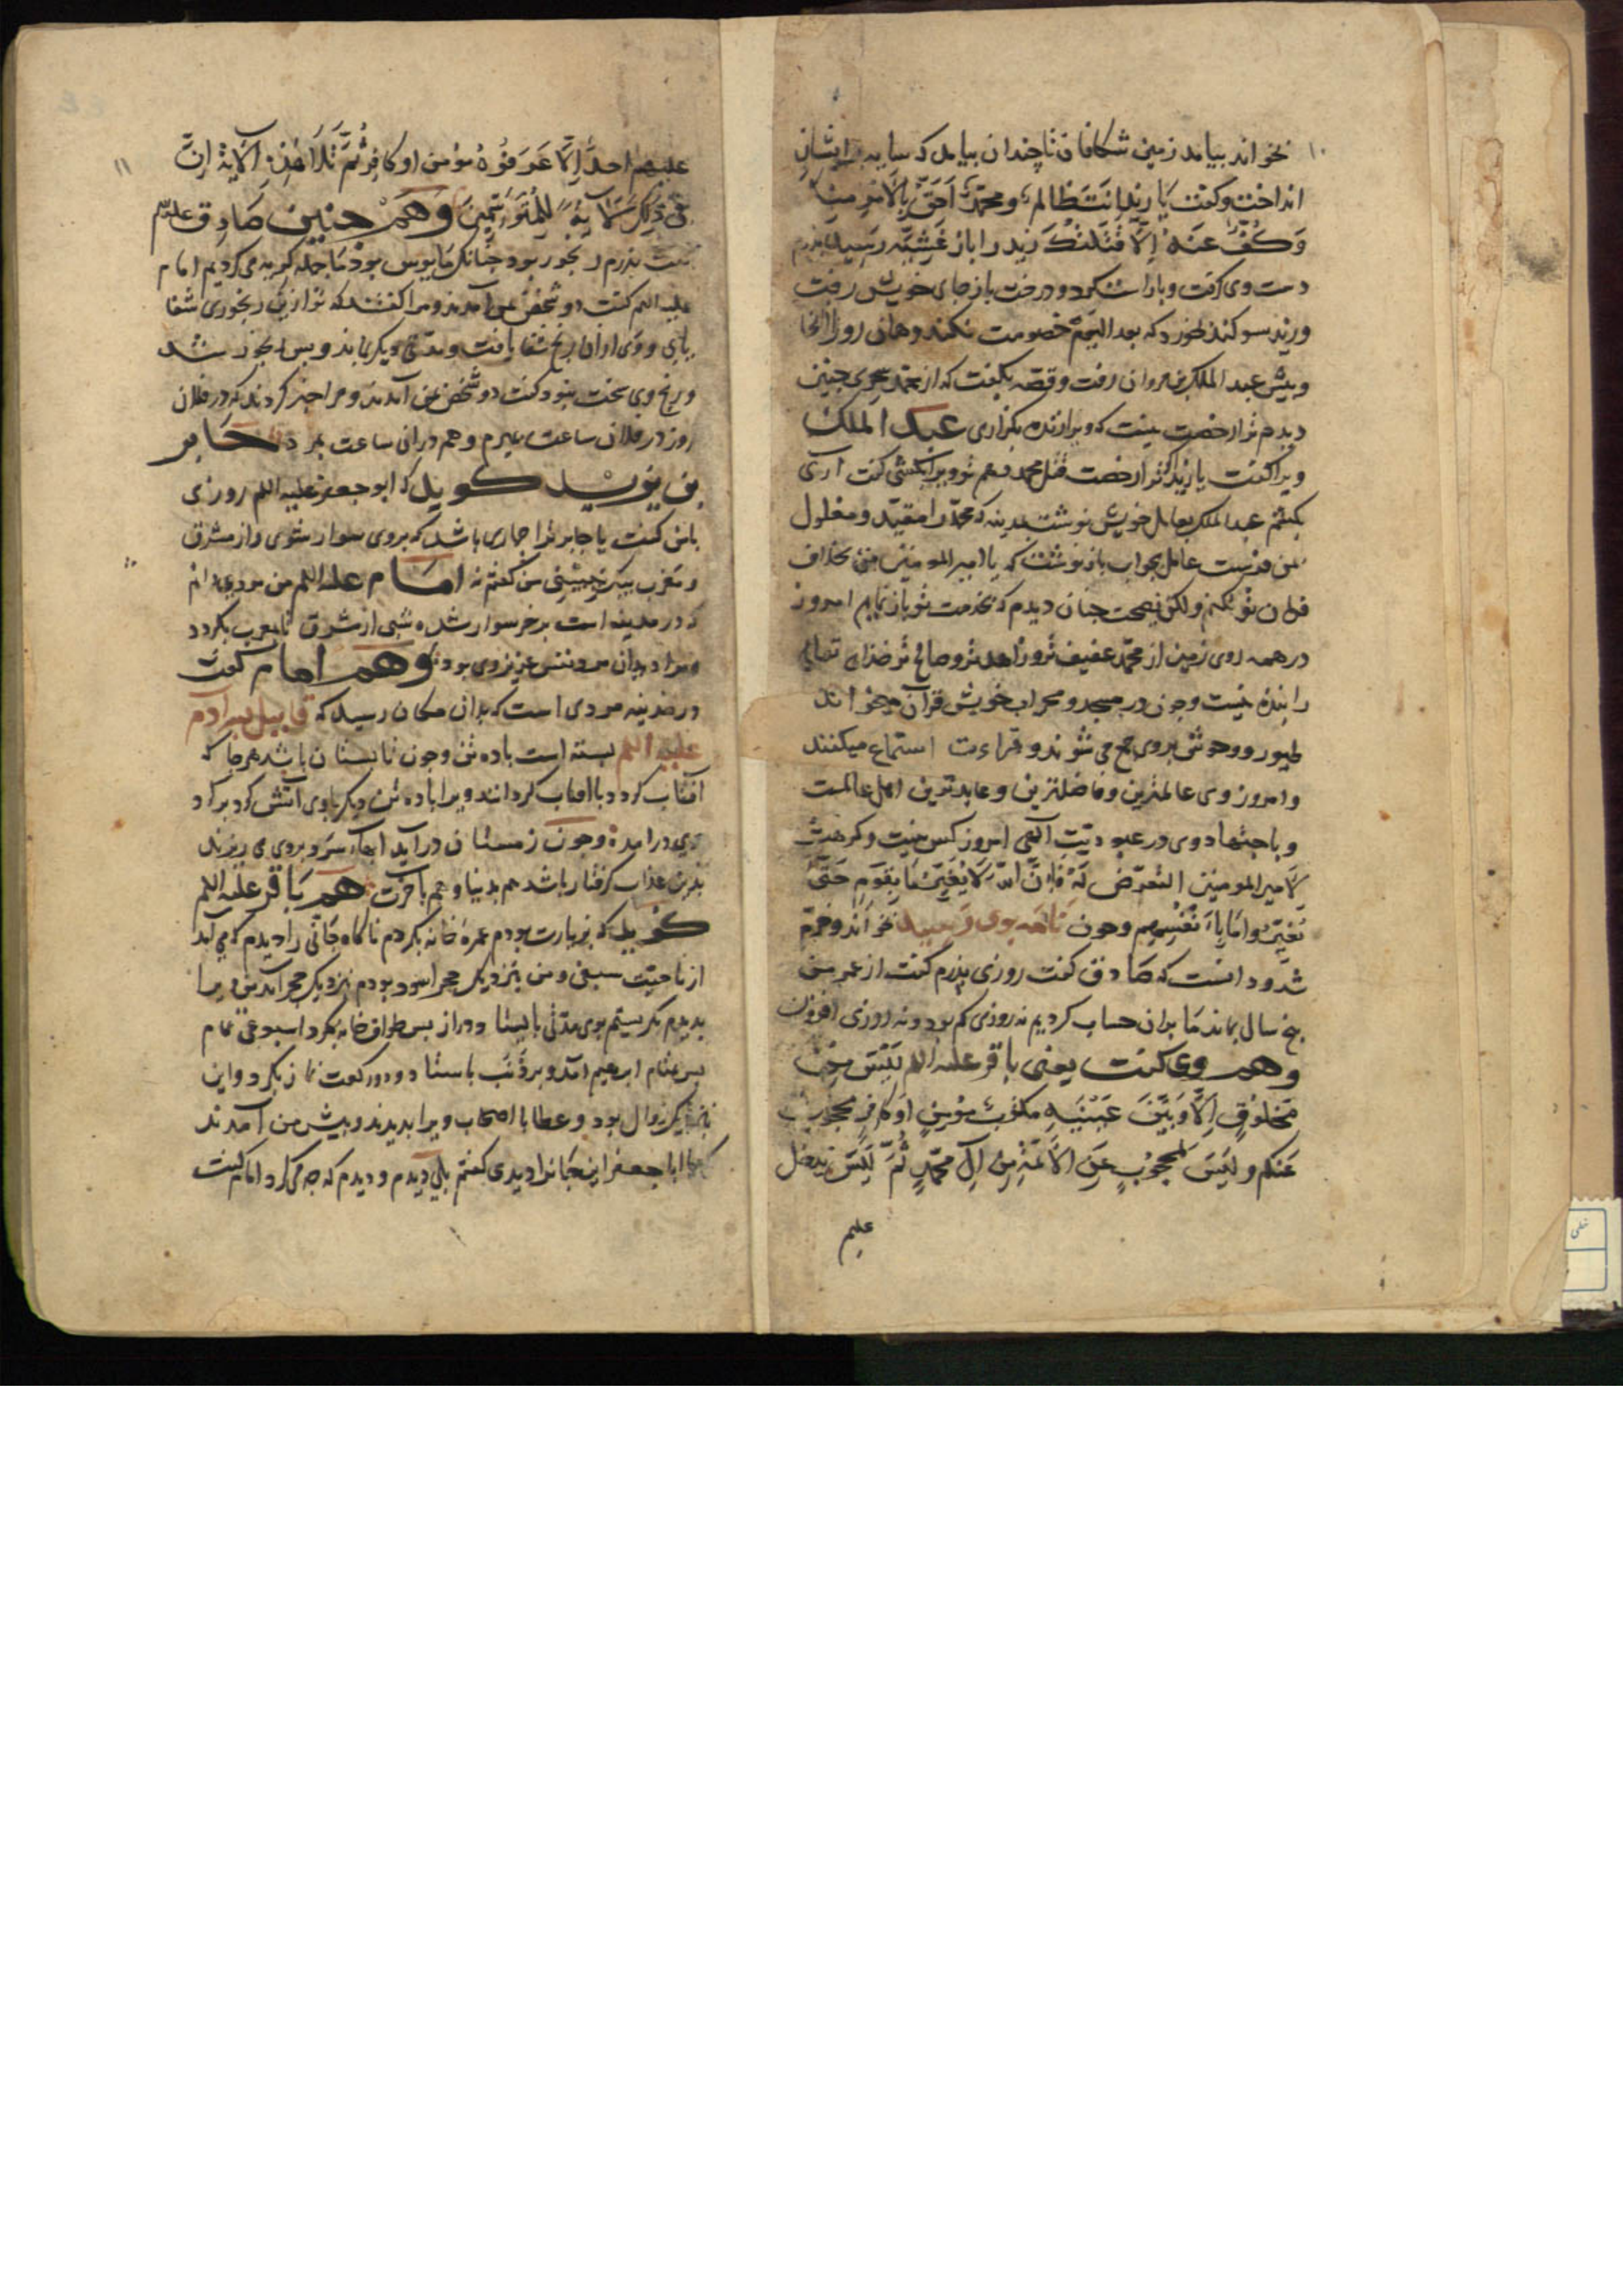 ۱۰
بخواند بیامد زمین شکافان تا چندان بیامد که سایه بر ایشان
انداخت و گفت یا زید انت ظالم و محمد احق بالامر منک
وکف عنه الا قتلتک زید را باز غشیه رسید پدرم
دست وی گرفت و باراست کرد و درخت باز جای خویش رفت
و زید سوکند خورد که بعد الیوم خصومت نکند و همان روز از انجا
و پیش عبد الملک بن مروان رفت و قصه بگفت که از محمد سحری چنین
دیدم ترا رخصت نیست که ویرا زنده بگزاری عبد الملک
ویرا گفت یا زید اگر ترا رخصت قتل محمد دهم تو ویرا بکشی گفت اری
بکشم عبد الملک بعامل خویش نوشت بمدینه که محمد را مقید و مغلول
بمن فرست عامل بجواب باز نوشت که یا امیر المومنین من بخلاف
فرمان تو نکنم ولکن نصیحت چنان دیدم که بخدمت تو باز نمایم امروز
در همه روی زمین از محمد عفیف تر و زاهد تر و صالح تر خدای تعالی
را بنده نیست و چون در مسجد و محراب خویش قران می خواند
طیور و وحوش بروی جمع می شوند و قراءت استماع میکنند
و امروز وی عالمترین و فاضلترین و عابدترین اهل عالمست
و باجتهاد وی در عبودیت الهی امروز کس نیست و کرهت
لامیر المومنین التعرض له فان الله لا یغیر ما بقوم حتی
یغیروا ما بانفسهم و چون نامه بوی رسید بخواند و خرم
شد و دانست که صادق گفت روزی پدرم گفت از عمر من
پنج سال بماند ما بران حساب کردیم نه روزی کم بود و نه روزی افزون
و هم وی گفت یعنی باقر علیه السلم لیس من
مخلوق الا و بین عینیه مکتوب مومن او کافر محجوب
عنکم و لیس بمحجوب عن الائمة من ال محمد ثم لیس یدخل
علیهم
۱۱
علیهم احد الا عرفوه مومن او کافر ثم تلا هذه الآیة ان
فی ذلک لآیة للمتوسمین و هم چنین صادق علیه السلم
گفت پدرم رنجور بود چنانک مایوس بود ما جمله گریه می کردیم امام
علیه السلم گفت دو شخص بمن آمدند و مرا گفتند که تو ازین رنجوری شفا
یابی و وی ازان رنج شفا یافت و مدتی دیگر بماند و پس رنجور شد
و رنج وی سخت نبود گفت دو شخص بمن آمدند و مرا خبر کردند که در فلان
روز در فلان ساعت بمیرم و هم دران ساعت بمرد جابر
بن یزید گوید که ابو جعفر علیه السلم روزی
بامن گفت یا جابر ترا حماری باشد که بروی سوار شوی و از مشرق
و مغرب بیک شب من گفتم نه امام علیه السلم من مردی دانم
که در مدینه است بر خر سوار شده شبی از مشرق تا مغرب بگردد
و مراد بدان مرد نفس عزیز وی بود و هم امام گفت
در مدینه مردی است که بدان مکان رسید که قابیل پسر ادم
علیه السلم بسته است با ده تن و چون تابستان باشد هرجا که
آفتاب گردد با افتاب گردانند ویرا با ده تن دیگر باوی آتش گرد برگرد
وی درامده و چون زمستان درآید ابهاء سرد بروی می ریزند
بدین عذاب گرفتار باشد هم بدنیا و هم بآخرت هم باقر علیه السلم
گوید که بزیارت بودم عمره خانه بکردم ناکاه جانی را دیدم که می آید
از ناحیت سعی و من بنزدیک حجر اسود بودم بنزدیک حجر آمد من ویرا
بدیدم نگریستم بوی مدتی بایستاد دراز پس طواف خانه بکرد اسبوعی تمام
پس بمقام ابرهیم آمد و بر ذنب باستاد و دو رکعت نماز بگرد و این
بنزدیک زوال بود و عطا با اصحاب ویرا بدیدند و پیش من آمدند
گفتند یا ابا جعفر این جانرا دیدی گفتم بلی دیدم و دیدم که چه می کرد امام گفت